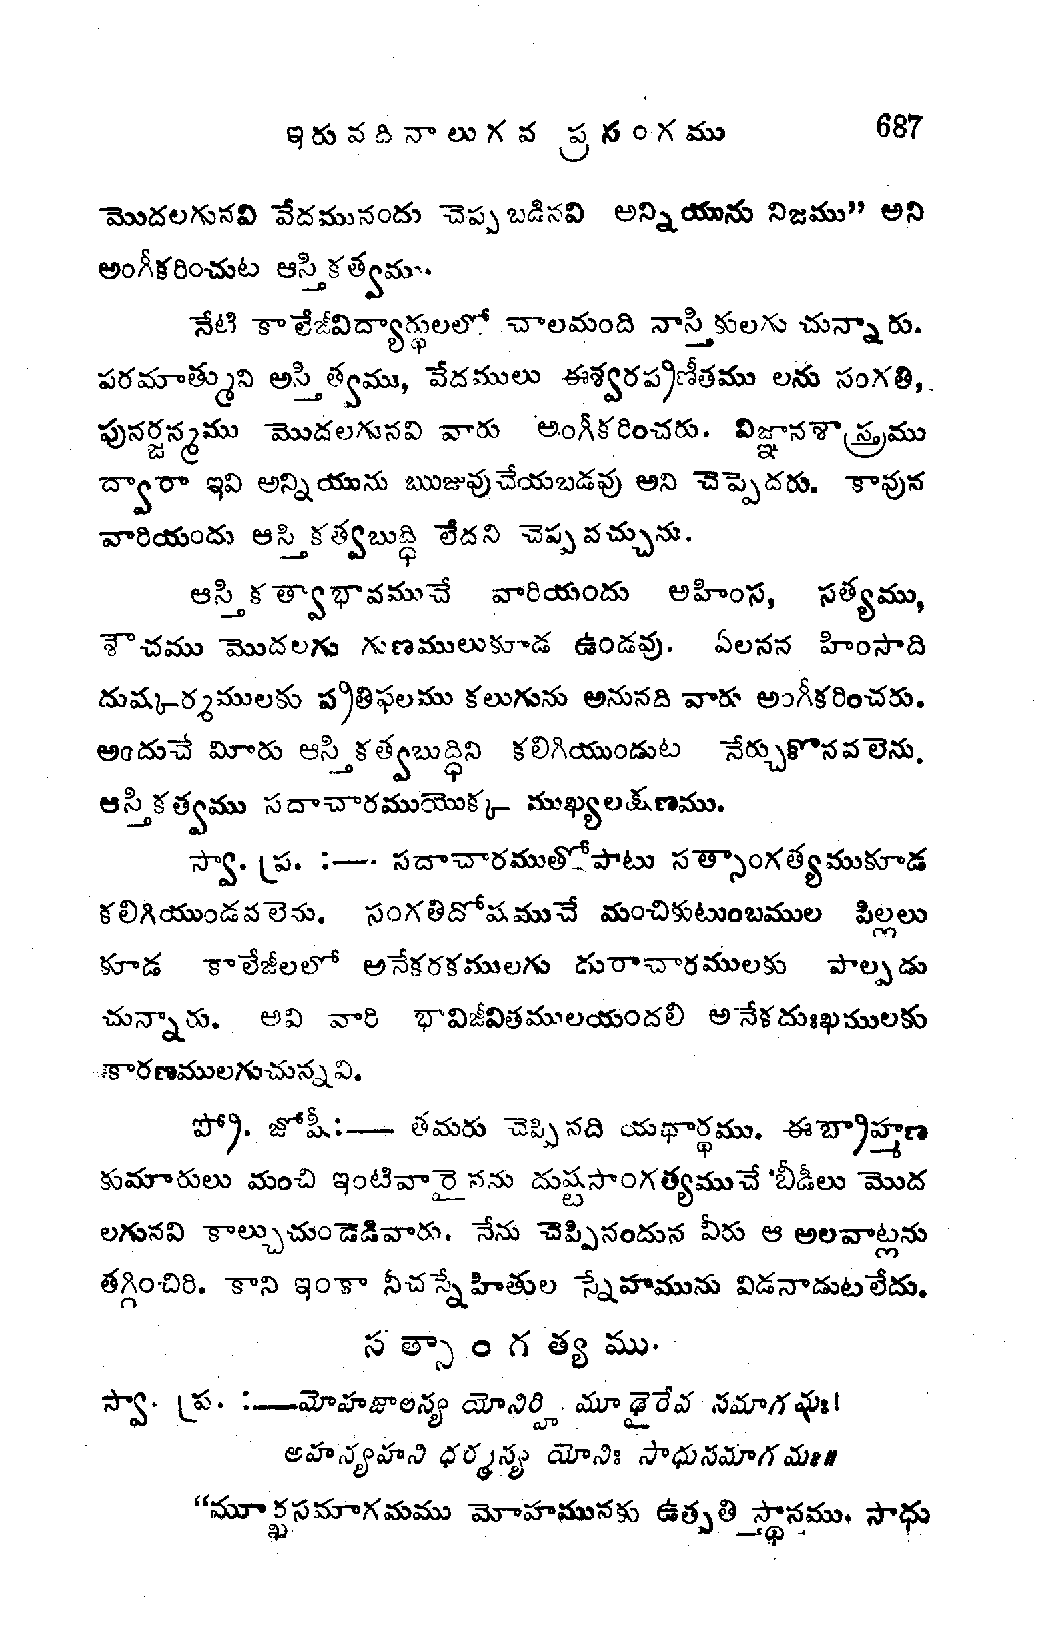 ఇరువదినాలుగవ ప్రసంగము 687
మొదలగునవి వేదమునందు చెప్పబడినవి అన్నియును నిజము” అని
అంగీకరించుట ఆస్తికత్వము.
నేటి కాలేజీవిద్యార్థులలో చాలమంది నాస్తికులగు చున్నారు.
పరమాత్ముని అస్తిత్వము, వేదములు ఈశ్వరప్రణీతము లను సంగతి,
పునర్జన్మము మొదలగునవి వారు అంగీకరించరు. విజ్ఞానశాస్త్రము
ద్వారా ఇవి అన్నియును ఋజువుచేయబడవు అని చెప్పెదరు. కావున
వారియందు ఆస్తికత్వబుద్ధి లేదని చెప్పవచ్చును.
ఆస్తికత్వాభావముచే వారియందు అహింస, సత్యము,
శౌచము మొదలగు గుణములుకూడ ఉండవు. ఏలనన హింసాది
దుష్కర్మములకు ప్రతిఫలము కలుగును అనునది వారు అంగీకరించరు.
అందుచే మీరు ఆస్తికత్వబుద్ధిని కలిగియుండుట నేర్చుకొనవలెను.
ఆస్తికత్వము సదాచారముయొక్క ముఖ్యలక్షణము.
స్వా. ప్ర. :—. సదాచారముతోపాటు సత్సాంగత్యముకూడ
కలిగియుండవలెను. సంగతిదోషముచే మంచికుటుంబముల పిల్లలు
కూడ కాలేజీలలో అనేకరకములగు దురాచారములకు పాల్పడు
చున్నారు. అవి వారి భావిజీవితములయందలి అనేకదుఃఖములకు
కారణములగుచున్నవి.
ప్రో. జోషీ:— తమరు చెప్పినది యథార్థము. ఈబ్రాహ్మణ
కుమారులు మంచి ఇంటివారైనను దుష్టసాంగత్యముచే బీడీలు మొద
లగునవి కాల్చుచుండెడివారు. నేను చెప్పినందున వీరు ఆ అలవాట్లను
తగ్గించిరి. కాని ఇంకా నీచస్నేహితుల స్నేహమును విడనాడుటలేదు.
సత్సాంగత్యము.
స్వా. ప్ర. :—మోహజాలస్య యోనిర్హి మూఢైరేవ సమాగమః।
అహన్యహని ధర్మస్య యోనిః సాధుసమాగమః॥
“మూర్ఖసమాగమము మోహమునకు ఉత్పత్తిస్థానము. సాధు